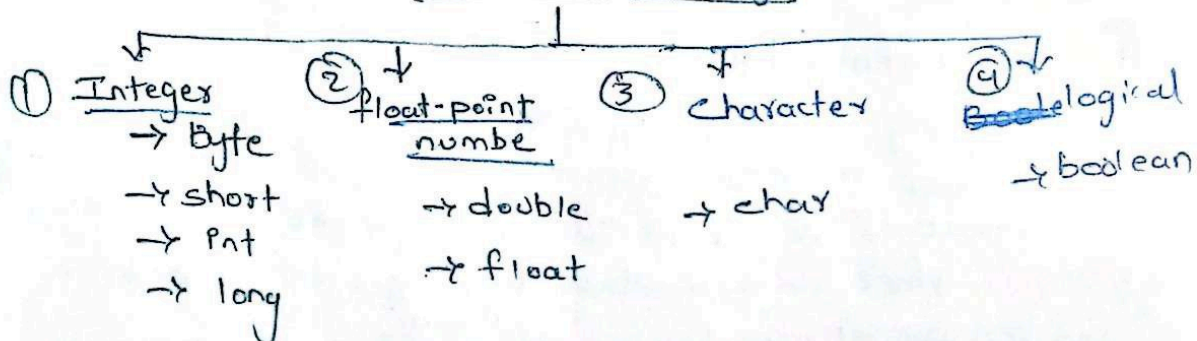 ① Integer
→ Byte
→ short
→ int
→ long
② float-point
numbe
→ double
→ float
③ Character
→ char
④ logical
→ boolean